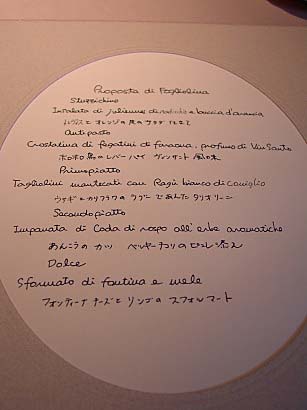 Proposta di Fogliolina
Stuzzichino
Insalata di julienne di sedano e buccia d'arancia
オレンジの皮のサラダ仕立て
Antipasto
Crostatina di fegatini di faraona, profumo di Vin Santo
ホロホロ鳥のレバーパイ ヴィンサント風味
Primo piatto
Tagliolini mantecati con Ragù bianco di Coniglio
ウサギとカリフラワのラグーであえたタリオリーニ
Secondo piatto
Impanata di Coda di rospo all'erbe aromatiche
あんこうのカツ
Dolce
Sformato di fontina e mele
フォンティーナチーズとリンゴのスフォルマート